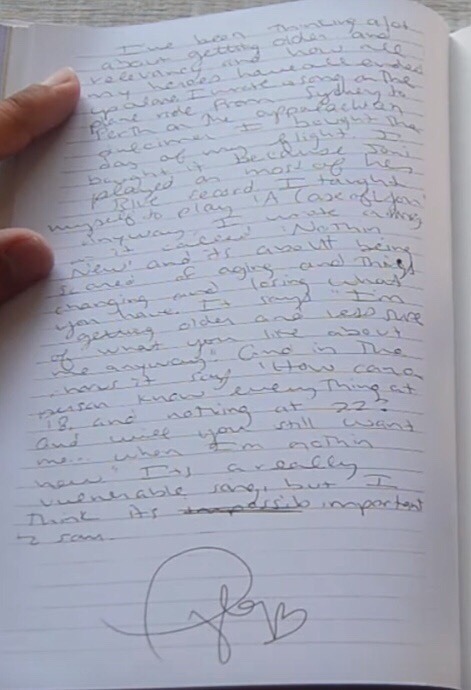 I've been thinking a lot
about getting older and
relevancy and how all
my heroes have all ended
up alone. I wrote a song on the
plane ride from Sydney to
Perth on the appalachian
dulcimer I bought the
day of my flight. I
bought it because Joni
played on most of her
Blue record. I taught
myself to play 'A Case of You'
anyway, I wrote a song
is called 'Nothin
New' and its about being
scared of aging and things
changing and losing what
you have. It says "I'm
getting older and less sure
of what you like about
me anyway" and in the
chorus it says 'How can a
person know everything at
18 and nothing at 22?
And will you still want
me... when I'm nothin
new' Its a really
vulnerable song, but I
think its important
2 sam